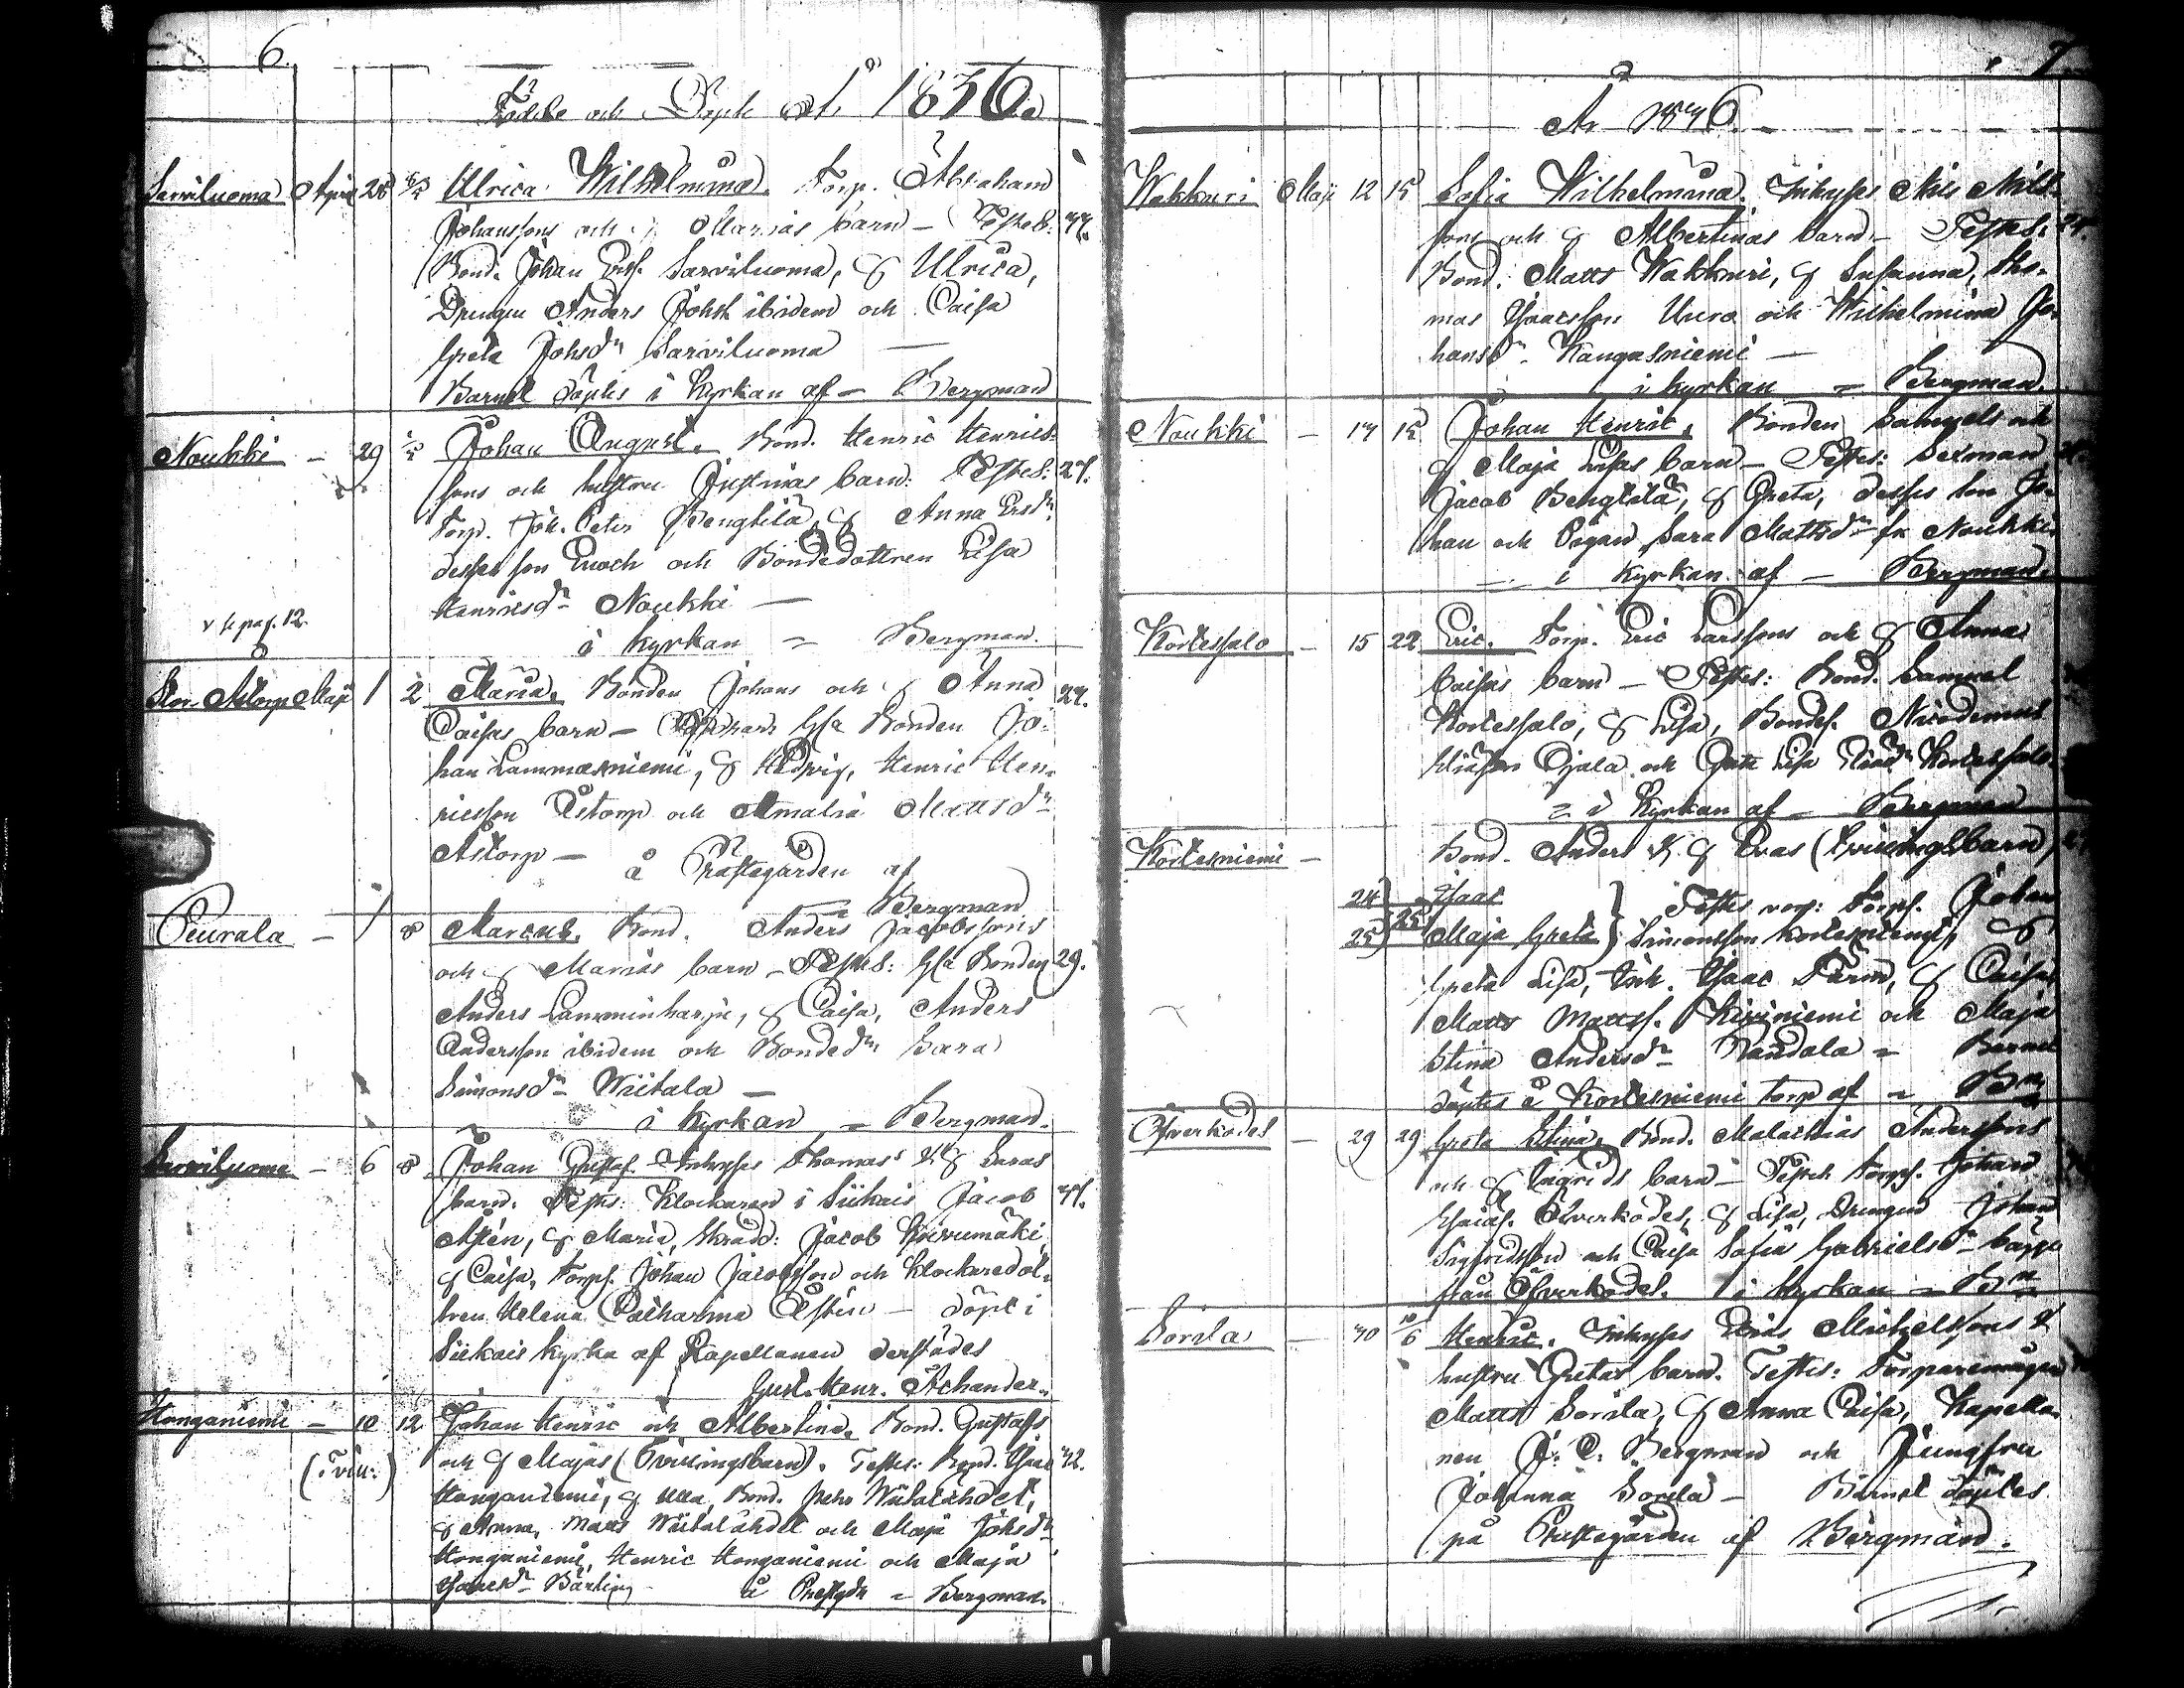 6.
Födde och Döpte År 1836.
Sarviluoma April 28 8/5 Ulrica Wilhelmina. Torp. Abraham
Johanssons och Marias barn — Testes: 37.
Bond. Johan Sarviluoma, & Ulrica,
Drengen Anders Johss ibidem och Caisa
Greta Johsdr Sarviluoma —
Barnet döptes i Kyrkan af — Bergman
Noukki — 29 Johan August. Bond. Henric Henrics-
sons och hustru Justinas barn: Testes: 27.
Torp. Joh. Peter Bengtilä, & Anna Ersdr
desses son Enoch och Bondedottren Lisa
Henricsdr Noukki —
v. pag. 12.
i Kyrkan = Bergman.
Stor-Åstorp Maji 1 2 Maria. Bonden Johans och & Anna
Caisas barn — Bonden Jo-
han Lammasniemi, & Hedvig, Henric Hen-
ricsson Åstorp och Amalia Mattsdr
Åstorp —
å Prestegården af
Bergman
Peurala — 1 8 Marcus. Bond. Anders Jacobssons
och & Marias barn — Testes: Bonden 29.
Anders Lamminharju, & Caisa, Anders
Andersson ibidem och Bondedr Sara
Simonsdr Wiitala —
i Kyrkan = Bergman.
Sarviluoma — 6 8 Johan Gustaf. Inhyses Thomas & Saras
barn. Testes: Klockaren i Siikais Jacob
Astén, & Maria, Skrädd: Jacob Koivumäki,
& Caisa, Torps. Johan Jacobsson och Klockaredot-
tren Helena Catharina Astén — döpt i
Siikais Kyrka af Kapellanen derstädes
Gust. Henr. Achander.
Honganiemi — 10 12 Johan Henric och Albertina. Bond. Gustafs
(Tvill:)
och & Majas (Tvillingsbarn). Testes: Bond. Isaac 32.
Honganiemi, & Ulla, Bond. Wiitalähdet,
& Anna, Matts Wiitalähdet och Maja Johsdr
Honganiemi, Henric Honganiemi och Maja
Isacsdr Bärling å Prestgdn = Bergman.
7.
År 1836.
Wakkuri Maji 12 15 Sofia Wilhelmina. Inhyses Nils Nils-
sons och & Albertinas barn — Testes:
Bond. Matts Wakkuri, & Susanna, Tho-
mas Isacsson Uuro och Wilhelmina Jo-
hansdr Kangasniemi —
i kyrkan = Bergman.
Noukki — 14 15 Johan Henric. Bonden Samuels och
& Maja Lisas barn — Testes: Sexman
Jacob Bengtilä, & Greta, desses son Jo-
han och Pigan Sara Mattsdr fr Noukki
i Kyrkan af — Bergman.
Kortessalo — 15 22 Eric. Torp. Eric Larssons och & Anna
Caisas barn — Testes: Bond. Samuel
Kortessalo, & Lisa, Bondes. Nicodemus
Eliasson Ojala och Greta Lisa Kortessalo.
= i Kyrkan af — Bergman
Kortesniemi — Bond. Anders & Evas (Tvillingsbarn)
24 Isaac } Testes: Torps. Johan
25 25 Maja Greta } Simonsson Kortesniemi, &
Greta Lisa, Inh. Isaac Färm, & Caisa,
Matts Mattss. Kiviniemi och Maja
Stina Andersdr Randala = Barnen
döptes å Kortesniemi torp af = Bn
Öfverködes — 29 29 Greta Stina. Bond. Malachias Anderssons
och & Ingrids barn — Testes Torps. Johan
Öfverködes, & Lisa, Drengen Johan
Sigfridsson och Caisa Sofia Gabrielsdr
från Öfverködes. i kyrkan = Bn
Sorsla — 30 10/6 Henric. Inhyses Elias Michelssons &
hustru Gretas barn. Testes: Torparemågen
Matts Sorsla, & Anna Caisa, Kapella-
nen J. C. Bergman och Jungfru
Johanna Sorsla — Barnet döptes
på Prestegården af Bergman.